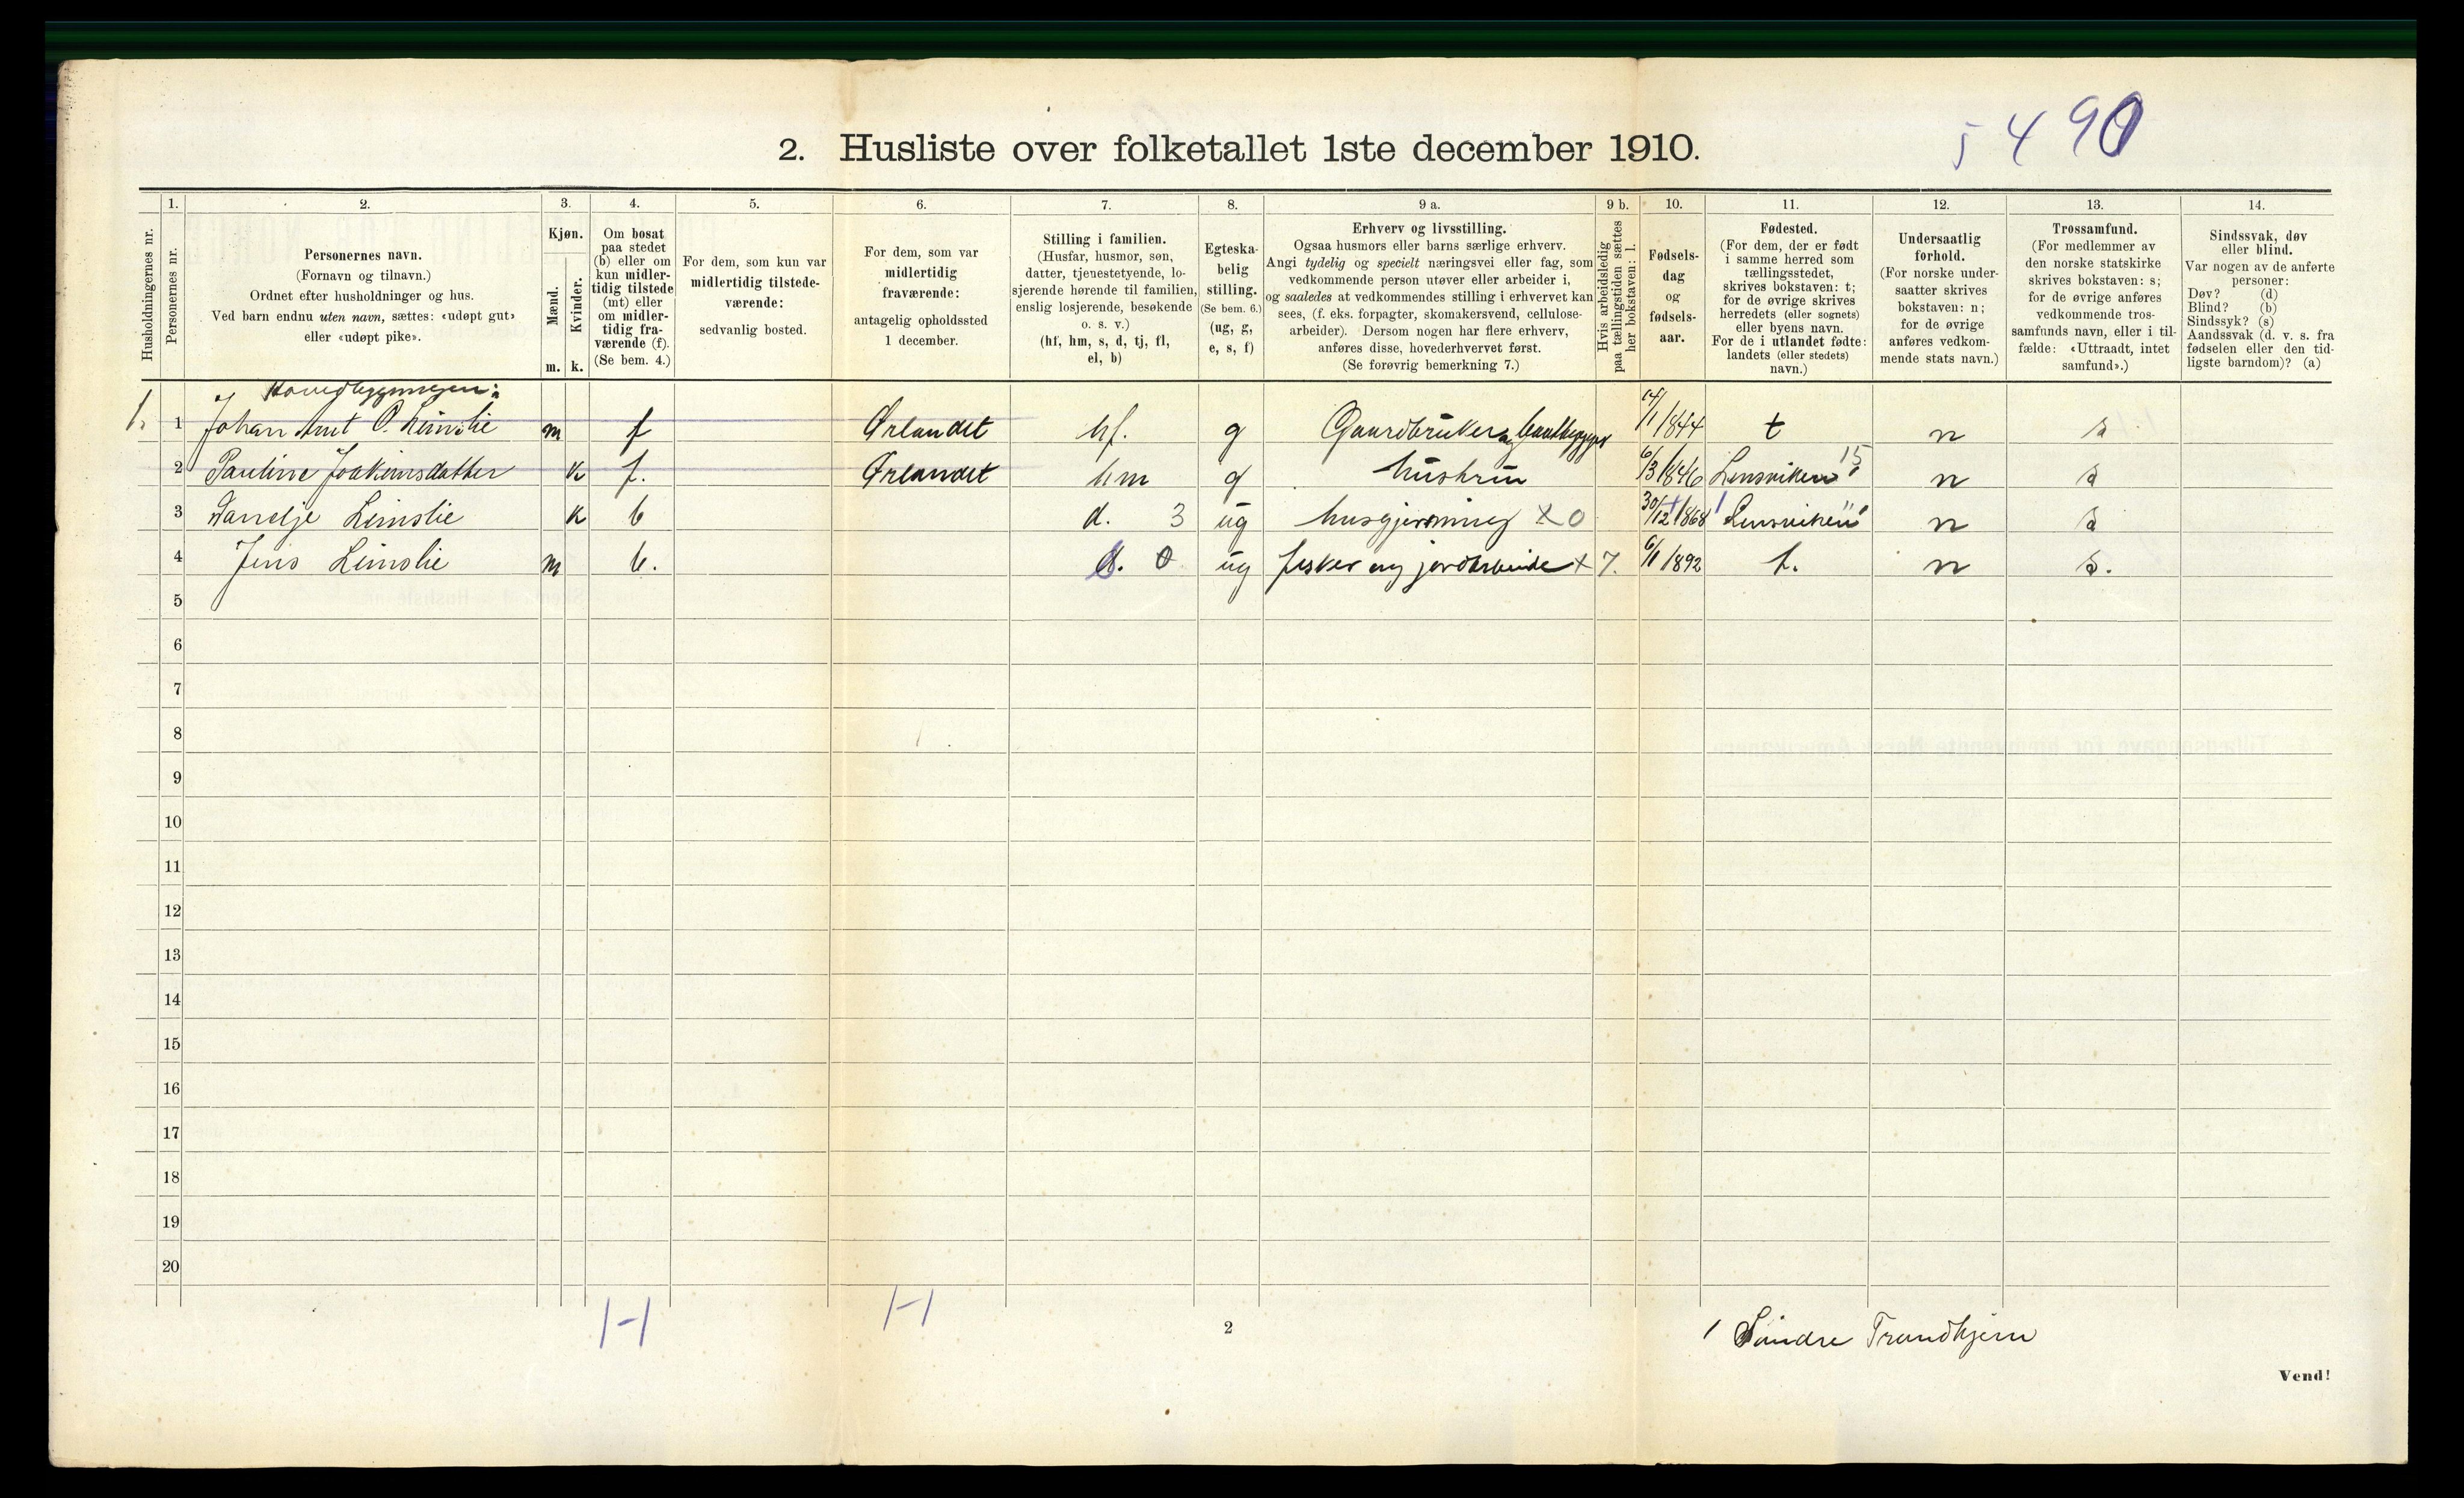 5 490
2. Husliste over folketallet 1ste december 1910.
Husholdningernes nr.
1. Personernes nr.
2. Personernes navn. (Fornavn og tilnavn.) Ordnet efter husholdninger og hus. Ved barn endnu uten navn, sættes: «udøpt gut» eller «udøpt pike».
3. Kjøn. Mænd. m. Kvinder. k.
4. Om bosat paa stedet (b) eller om kun midlertidig tilstede (mt) eller om midlertidig fraværende (f). (Se bem. 4.)
5. For dem, som kun var midlertidig tilstedeværende: sedvanlig bosted.
6. For dem, som var midlertidig fraværende: antagelig opholdssted 1 december.
7. Stilling i familien. (Husfar, husmor, søn, datter, tjenestetyende, losjerende hørende til familien, enslig losjerende, besøkende o. s. v.) (hf, hm, s, d, tj, fl, el, b)
8. Egteskabelig stilling. (Se bem. 6.) (ug, g, e, s, f)
9 a. Erhverv og livsstilling. Ogsaa husmors eller barns særlige erhverv. Angi tydelig og specielt næringsvei eller fag, som vedkommende person utøver eller arbeider i, og saaledes at vedkommendes stilling i erhvervet kan sees, (f. eks. forpagter, skomakersvend, cellulosearbeider). Dersom nogen har flere erhverv, anføres disse, hovederhvervet først. (Se forøvrig bemerkning 7.)
9 b. Hvis arbeidsledig paa tællingstiden sættes her bokstaven: l.
10. Fødselsdag og fødselsaar.
11. Fødested. (For dem, der er født i samme herred som tællingsstedet, skrives bokstaven: t; for de øvrige skrives herredets (eller sognets) eller byens navn. For de i utlandet fødte: landets (eller stedets) navn.)
12. Undersaatlig forhold. (For norske undersaatter skrives bokstaven: n; for de øvrige anføres vedkommende stats navn.)
13. Trossamfund. (For medlemmer av den norske statskirke skrives bokstaven: s; for de øvrige anføres vedkommende trossamfunds navn, eller i tilfælde: «Uttraadt, intet samfund».)
14. Sindssvak, døv eller blind. Var nogen av de anførte personer: Døv? (d) Blind? (b) Sindssyk? (s) Aandssvak (d. v. s. fra fødselen eller den tidligste barndom)? (a)
Hovedbygningen:
1. 1 Johan Arnt O. Leinslie m f Ørlandet hf. g Gaardbruker og baatbygger /1 1844 t n s
2 Pauline Joakimsdatter k f. Ørlandet hm g hustru 6/3 1846 Lensviken 15 n s
3 Leinslie k b d. 3 ug husgjerning x 0 30/12 1868 Lensviken " n s
4 Jens Leinslie m b. s. 0 ug fisker og jordarbeide x 7. 6/1 1892 t. n s.
5
6
7
8
9
10
11
12
13
14
15
16
17
18
19
20
1-1 1-1
2
1 Søndre Trondhjem
Vend!